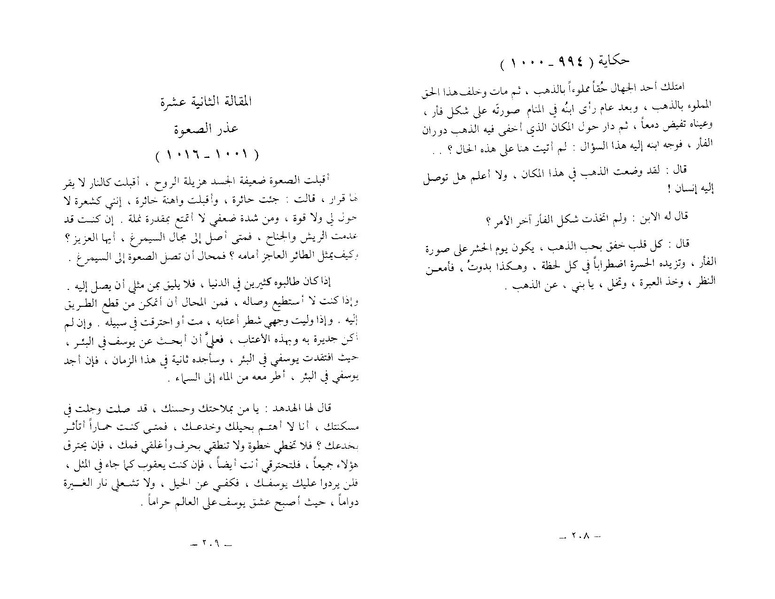 حكاية ( ٩٩٤ - ١٠٠٠ )
امتلك أحد الجهال حُقاً مملوءاً بالذهب ، ثم مات وخلف هذا الحق
المملوء بالذهب ، وبعد عام رأى ابنُه في المنام صورتَه على شكل فأر ،
وعيناه تفيض دمعاً ، ثم دار حول المكان الذي أخفى فيه الذهب دوران
الفأر ، فوجه ابنه إليه هذا السؤال : لم أتيت هنا على هذه الحال ؟ . .
قال : لقد وضعت الذهب في هذا المكان ، ولا أعلم هل توصل
إليه إنسان !
قال له الابن : ولم اتخذت شكل الفأر آخر الأمر ؟
قال : كل قلب خفق بحب الذهب ، يكون يوم الحشر على صورة
الفأر ، وتزيده الحسرة اضطراباً في كل لحظة ، وهكذا بدوتُ ، فأمعن
النظر ، وخذ العبرة ، وتخل ، يا بني ، عن الذهب .
— ٢٠٨ —
المقالة الثانية عشرة
عذر الصعوة
( ١٠٠١ - ١٠١٦ )
أقبلت الصعوة ضعيفة الجسد هزيلة الروح ، أقبلت كالنار لا يقر
لها قرار ، قالت : جئت حائرة ، وأقبلت واهنة حائرة ، إنني كشعرة لا
حول لي ولا قوة ، ومن شدة ضعفي لا أتمتع بمقدرة نملة . إن كنت قد
عدمت الريش والجناح ، فمتى أصل إلى مجال السيمرغ ، أيها العزيز ؟
وكيف يمثل الطائر العاجز أمامه ؟ فمحال أن تصل الصعوة إلى السيمرغ .
إذا كان طالبوه كثيرين في الدنيا ، فلا يليق بمن مثلي أن يصل إليه .
وإذا كنت لا أستطيع وصاله ، فمن المحال أن أتمكن من قطع الطريق
إليه . وإذا وليت وجهي شطر أعتابه ، مت أو احترقت في سبيله . وإن لم
أكن جديرة به وبهذه الأعتاب ، فعليَّ أن أبحث عن يوسف في البئر ،
حيث افتقدت يوسفي في البئر ، وسأجده ثانية في هذا الزمان ، فإن أجد
يوسفي في البئر ، أطر معه من الماء إلى السماء .
قال لها الهدهد : يا من بملاحتك وحسنك ، قد صلت وجلت في
مسكنتك ، أنا لا أهتم بحيلك وخدعك ، فمتى كنت حماراً أتأثر
بخدعك ؟ فلا تخطي خطوة ولا تنطقي بحرف وأغلقي فمك ، فإن يحترق
هؤلاء جميعاً ، فلتحترقي أنت أيضاً ، فإن كنت يعقوب كما جاء في المثل ،
فلن يردوا عليك يوسفك ، فكفي عن الحيل ، ولا تشعلي نار الغيرة
دواماً ، حيث أصبح عشق يوسف على العالم حراماً .
— ٢٠٩ —